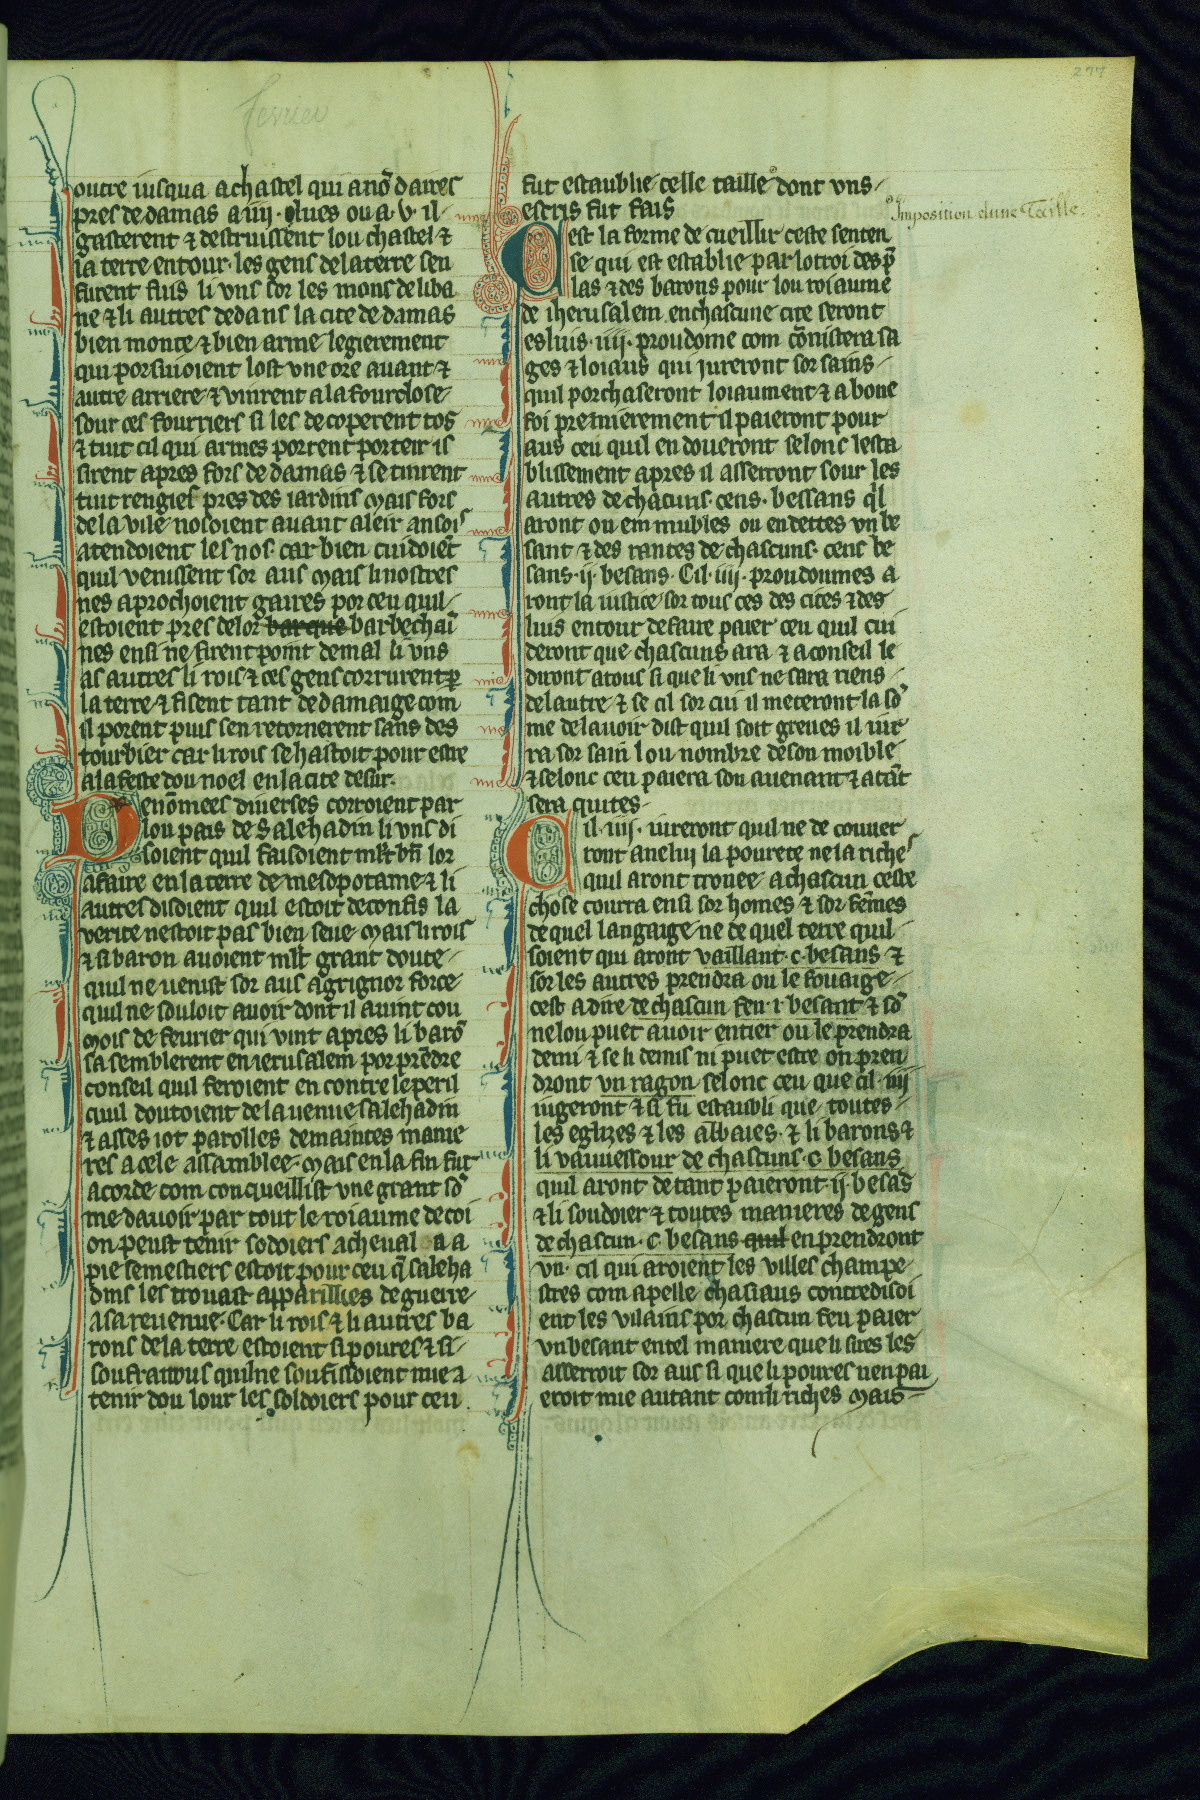 277
fevrier
outre iusqua a chastel qui a nō daires
pres de damas a iiij. liues ou a .v. il
gasterent ⁊ destruissent lou chastel ⁊
la terre entour. les gens de la terre sen
furent fuis li uns sor les mons de liba
ne ⁊ li autres dedans la cite de damas
bien monte ⁊ bien arme legierement
qui porsuioient lost vne ore auant ⁊
autre arriere ⁊ vinrent a la fourclose
sour ces fourriers si les decoperent tos
⁊ tuit cil qui armes portent porteir is
sirent apres fors de damas ⁊ se tinrent
tuit rengies pres des iardins mais fors
de la vile nosoient auant aleir ansois
atendoient les nos. car bien cuidoiēt
quil venissent sor aus mais li nostres
nes aprochoient gaires por ceu quil
estoient pres delor barque barbechai
nes ensi ne firent point de mal li vns
as autres li rois ⁊ ces gens corrurent ꝑ
la terre ⁊ fisent tant de damaige com
il porent puis sen retornerent sans des
tourbier car li rois se hastoit pour estre
a la feste dou noel en la cite desur.
Renōmees diuerses corroient par
lou pais de Salehadin li vns di
soient quil faisoient mlt bn̄ lor
afaire en la terre de mesopotame ⁊ li
autres disoient quil estoit deconfis la
verite nestoit pas bien seue mais li rois
⁊ si baron auoient mlt grant doute
quil ne uenist sor aus a grignor force
quil ne souloit auoir dont il auint cou
mois de feurier qui vint apres li barō
sa semblerent en ierusalem por prēdre
conseil quil feroient en contre le peril
cuil doutoient de la uenue salehadin
⁊ asses iot parolles de maintes manie
res a cele assamblee. mais en la fin fut
acorde com concqueillist vne grant sō
me dauoir par tout le roiaume de coi
on peust tenir sodoiers a cheual ⁊ a
pie se mestiers estoit pour ceu q̄ saleha
dins les trouast apparillies de guerre
a sa reuenue. Car li rois ⁊ li autres ba
rons de la terre estoient si poures ⁊ si
soufraitous quil ne soufissoient mie a
tenir dou lour les soldoiers pour ceu
fut estaublie celle taille dont vns
escris fut fais
Imposition d'une Taille.
Cest la forme de cueillir ceste senten
se qui est establie par lotroi des p̄
las ⁊ des barons pour lou roiaume
de iherusalem. en chascune cite seront
esluis .iiij. proudome com cōnistera sa
ges ⁊ loiaus qui jureront sor sains
quil porchaseront loiaument ⁊ a bone
foi premierement il paieront pour
aus ceu quil en doueront selonc lesta
blissement apres il asserront sour les
autres de chacuns .cens. bessans q̄l
aront ou em mubles ou en dettes vn be
sant ⁊ des rantes de chascuns. cens be
sans .ij. besans. Cil .iiij. proudoumes a
ront la iustice sor tous ces des cites ⁊ des
lius entour de faire paier ceu quil cui
deront que chascuns ara ⁊ a conseil le
diront a tous si que li vns ne sara riens
de lautre ⁊ se cil sor cui il meteront la sō
me de lauoir dist quil soit greues il iur
ra sor sain lou nombre de son moible
⁊ selonc ceu paiera son auenant ⁊ atāt
sera quites
Cil .iiij. iureront quil ne de couuer
ront a nelui la pourete ne la riche
quil aront trouee a chascun ceste
chose courra ensi sor homes ⁊ sor fēmes
de quel langaige ne de quel terre quil
soient qui aront vaillant .c. besans ⁊
sor les autres prendra ou le fouaige
cest a dire de chascun feu .i. besant ⁊ sō
ne lou puet auoir entier ou le prendra
demi ⁊ se li demis ni puet estre on pren
dront vn ragon selonc ceu que cil .iiij
iugeront ⁊ si fu estaubli que toutes
les eglizes ⁊ les abbaies. ⁊ li barons ⁊
li vauuessour de chascuns .c. besans
quil aront de tant paieront .ij. besās
⁊ li soudoier ⁊ toutes manieres de gens
de chascun .c. besans quil en prendront
vn. cil qui aroient les villes champe
stres com apelle chasiaus contredisoi
ent les vilains por chascun feu paier
vn besant en tel maniere que li sires les
asserroit sor aus si que li poures nen pai
eroit mie autant com li riches mais